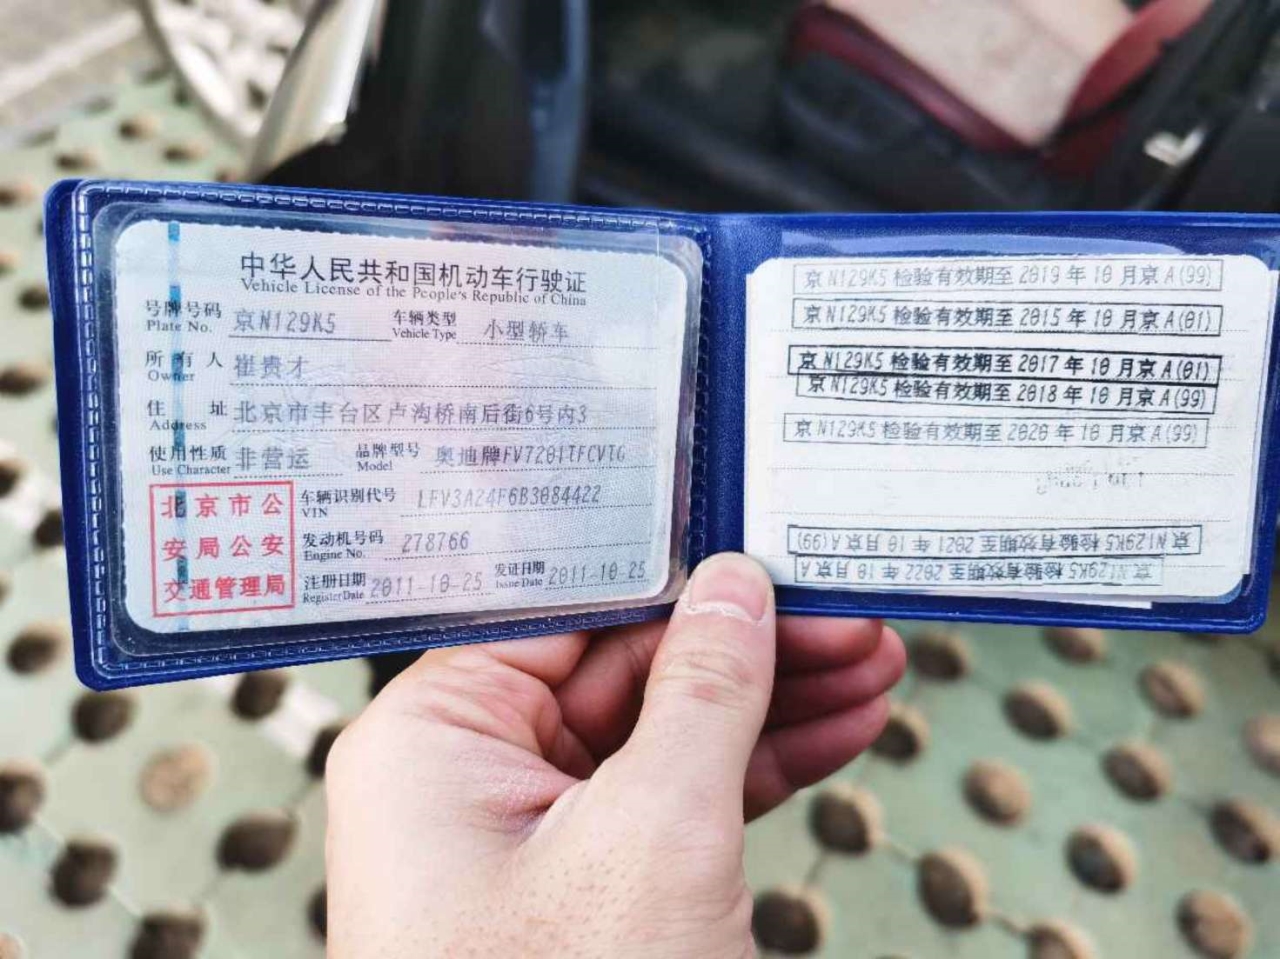 中华人民共和国机动车行驶证
Vehicle License of the People's Republic of China
号牌号码 京N129K5 车辆类型 小型轿车
Plate No. Vehicle Type
所有人 崔贵才
Owner
住址 北京市丰台区卢沟桥南后街6号内3
Address
使用性质 非营运 品牌型号 奥迪牌FV7201TFCVTG
Use Character Model
北京市公
安局公安
交通管理局
车辆识别代号 LFV3A24F6B3084422
VIN
发动机号码 278766
Engine No.
注册日期 2011-10-25 发证日期 2011-10-25
Register Date Issue Date
京N129K5 检验有效期至2019年10月京A(99)
京N129K5 检验有效期至2015年10月京A(01)
京N129K5 检验有效期至2017年10月京A(01)
京N129K5 检验有效期至2018年10月京A(99)
京N129K5 检验有效期至2020年10月京A(99)
京N129K5 检验有效期至2021年10月京A(99)
京N129K5 检验有效期至2022年10月京A